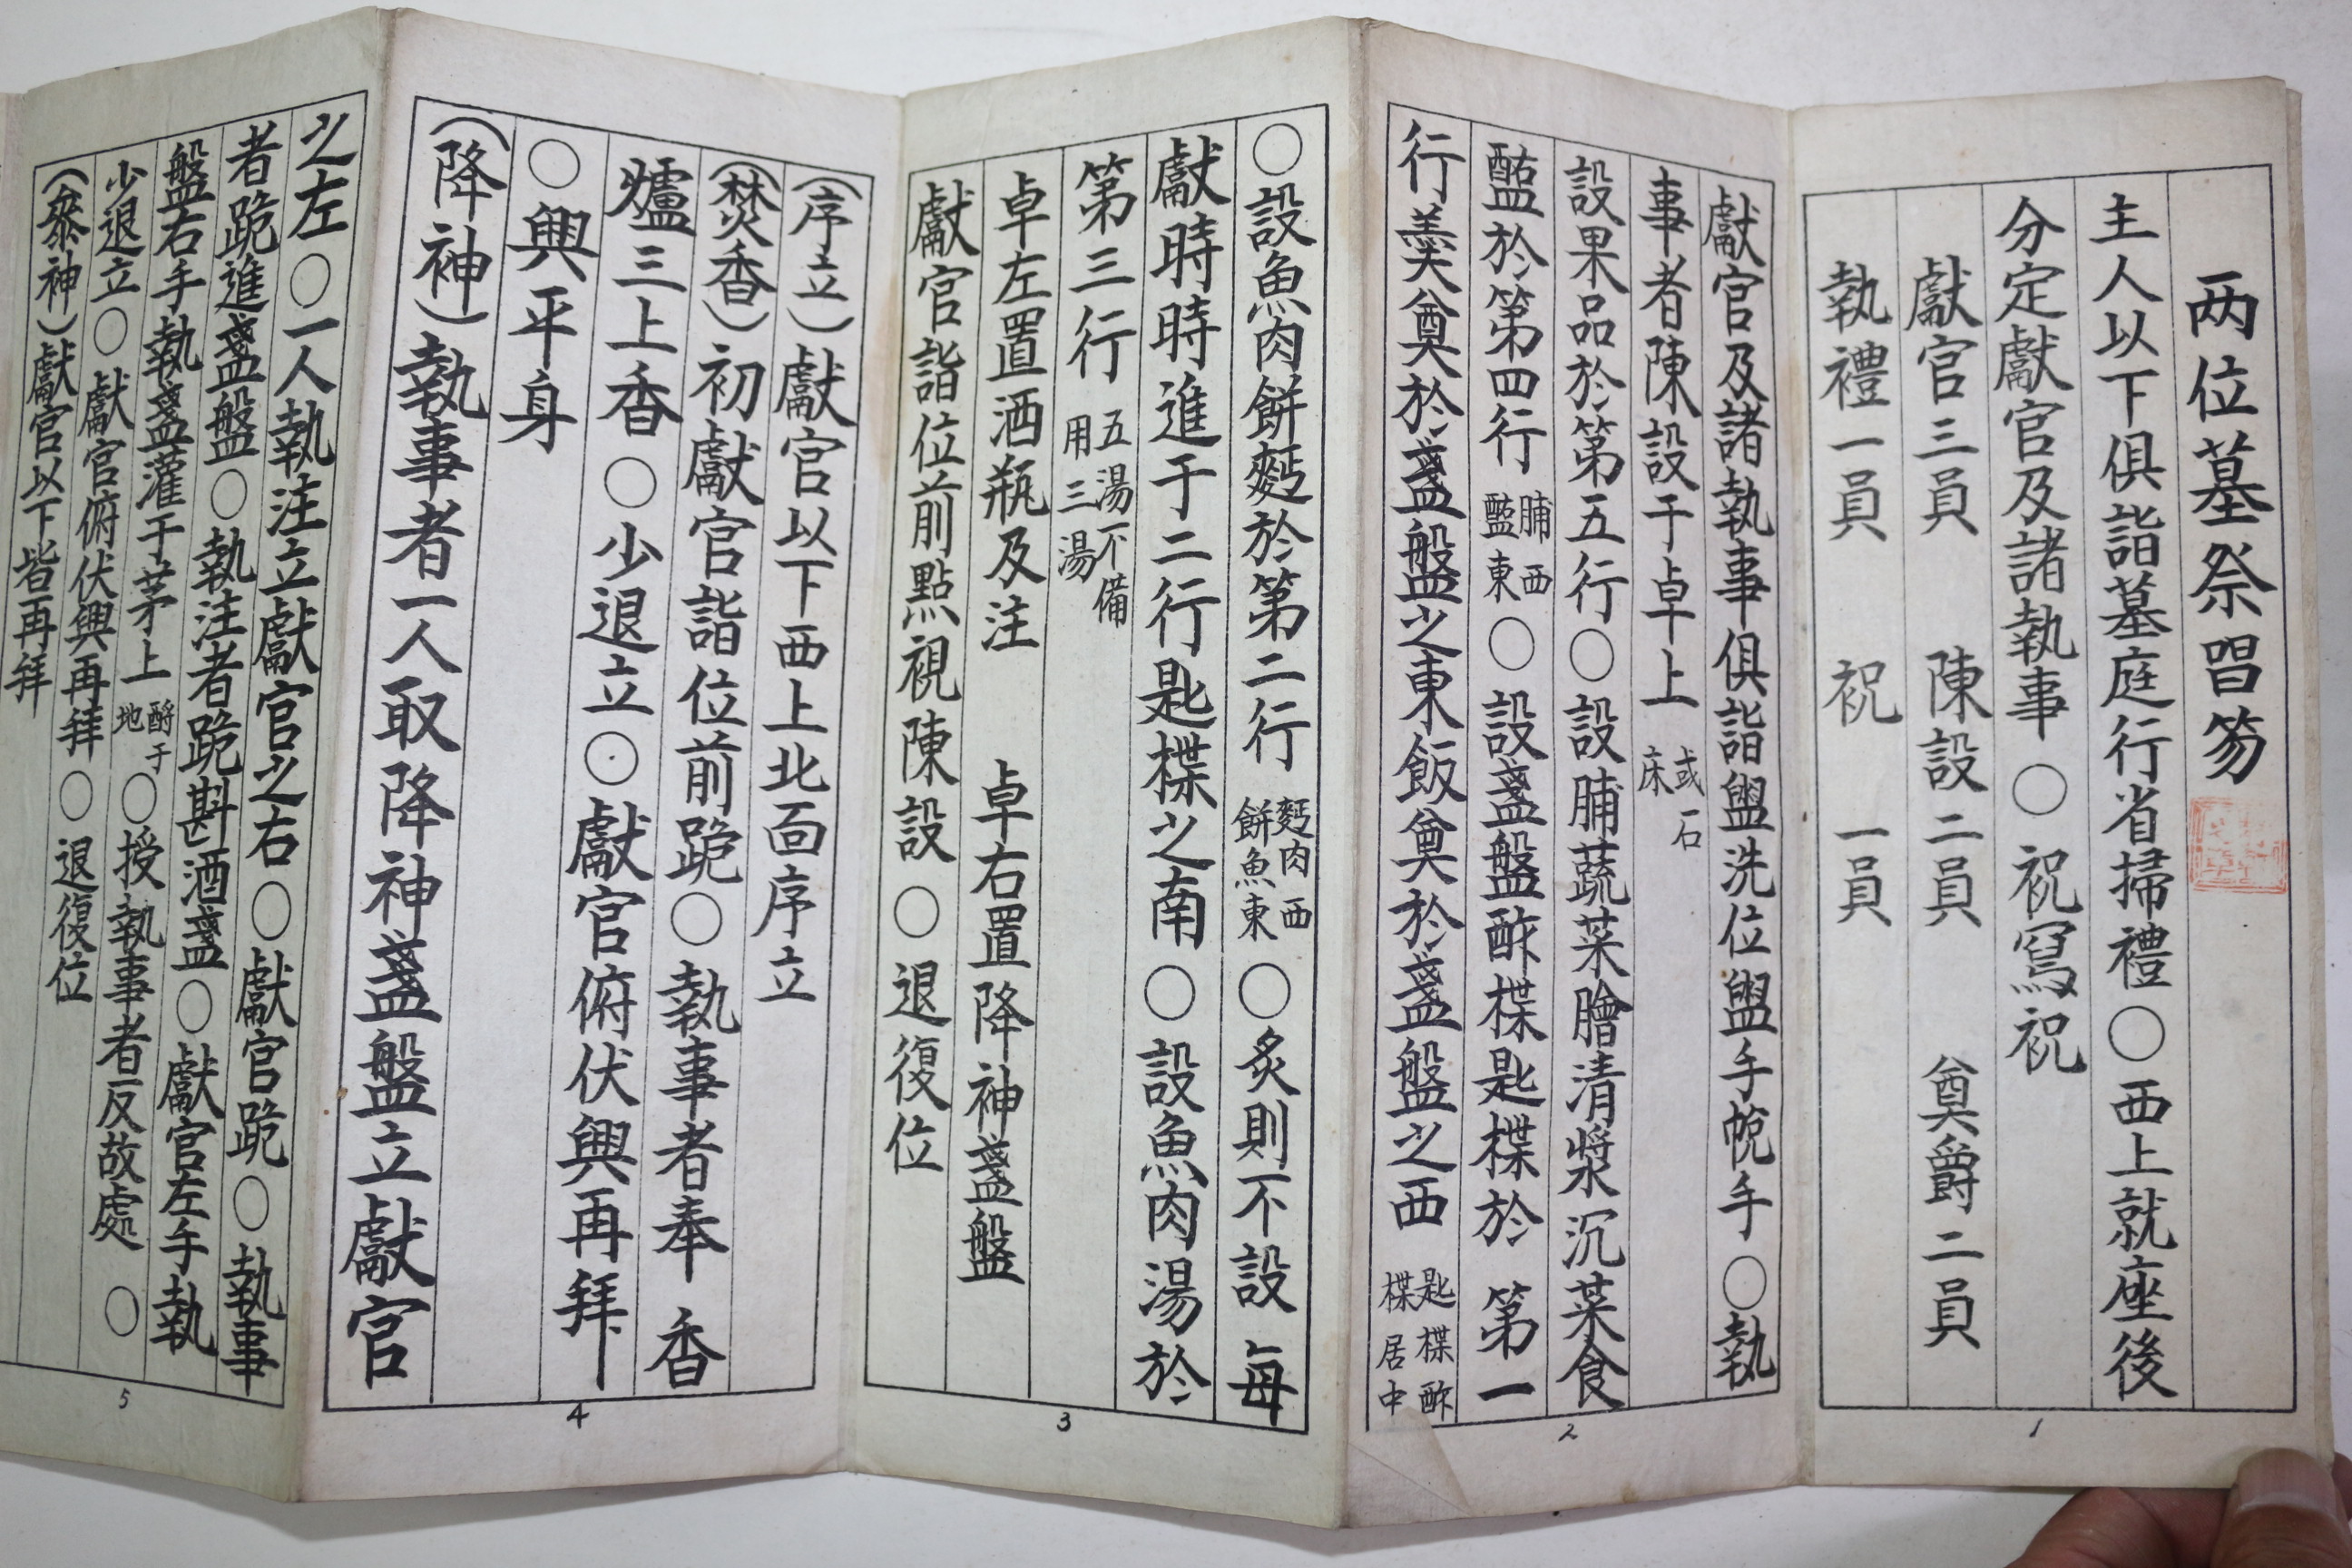 两位墓祭唱笏
主人以下俱詣墓庭行省掃禮○西上就座後
分定獻官及諸執事○祝寫祝
獻官三員 陳設二員 奠爵二員
執禮一員 祝 一員
1
獻官及諸執事俱詣盥洗位盥手帨手○執
事者陳設于卓上 或石床
設果品於第五行○設脯蔬菜膾清漿沉菜食
醢於第四行 脯西醢東 ○設盞盤酢楪匙楪於 第一
行羹奠於盞盤之東飯奠於盞盤之西 匙楪酢楪居中
2
○設魚肉餠麪於第二行 麪肉西餠魚東 ○炙則不設 每
獻時時進于二行匙楪之南○設魚肉湯於
第三行 五湯不備用三湯
卓左置酒瓶及注 卓右置降神盞盤
獻官詣位前點視陳設○退復位
3
(序立)獻官以下西上北面序立
(焚香)初獻官詣位前跪○執事者奉香
爐三上香○少退立○獻官俯伏興再拜
○興平身
(降神)執事者一人取降神盞盤立獻官
4
之左○一人執注立獻官之右○獻官跪○執事
者跪進盞盤○執注者跪斟酒盞○獻官左手執
盤右手執盞灌于茅上 酹于地 ○授執事者反故處○
少退立○獻官俯伏興再拜○退復位
(叅神)獻官以下皆再拜
5